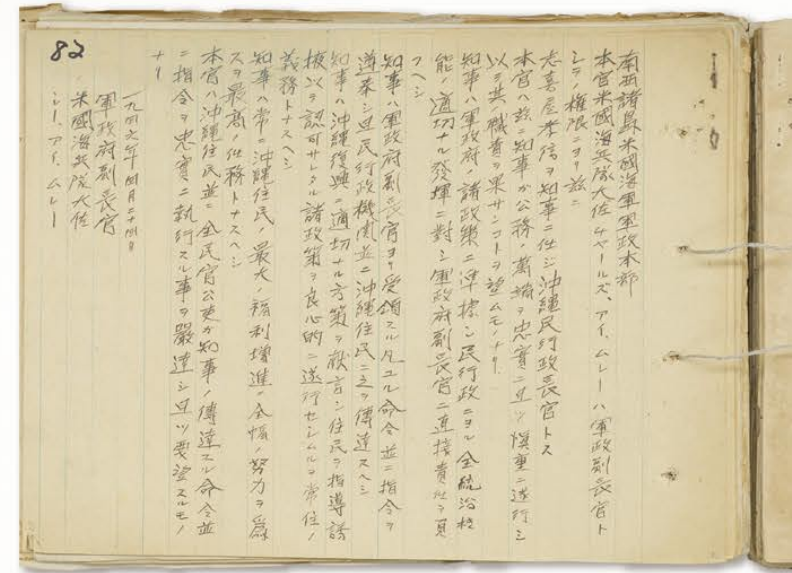 南西諸島米國海軍軍政本部
本官米國海兵隊大佐チャールズ、アイ、ムレーハ軍政副長官ト
シテノ權限ニヨリ茲ニ
志喜屋孝信ヲ知事ニ任シ沖縄民行政長官トス
本官ハ茲ニ知事ガ公務ノ萬端ヲ忠實ニ且ツ慎重ニ遂行シ
以テ其ノ職責ヲ果サンコトヲ望ムモノナリ
知事ハ軍政府ノ諸政策ニ準據シ民行政ニヨル全統治機
能ノ適切ナル發揮ニ對シ軍政府副長官ニ直接責任ヲ負
フヘシ
知事ハ軍政府副長官ヨリ受領スル凡ユル命令並ニ指令ヲ
遵奉シ且民行政機関並ニ沖縄住民ニ之ヲ傳達スヘシ
知事ハ沖縄復興ニ適切ナル方策ヲ献言シ住民ヲ指導誘
掖以テ認可サレタル諸政策ヲ良心的ニ遂行セシムルヲ常任ノ
義務トナスヘシ
知事ハ常ニ沖縄住民ノ最大ノ福利増進ノ全幅ノ努力ヲ為
スヲ最高ノ任務トナスヘシ
本官ハ沖縄住民並ニ全民官公吏ガ知事ノ傳達スル命令並
ニ指令ヲ忠實ニ執行スル事ヲ嚴達シ且ツ要望スルモノ
ナリ
一九四六年四月二十四日
軍政府副長官
米國海兵隊大佐
シー、アイ、ムレー
82